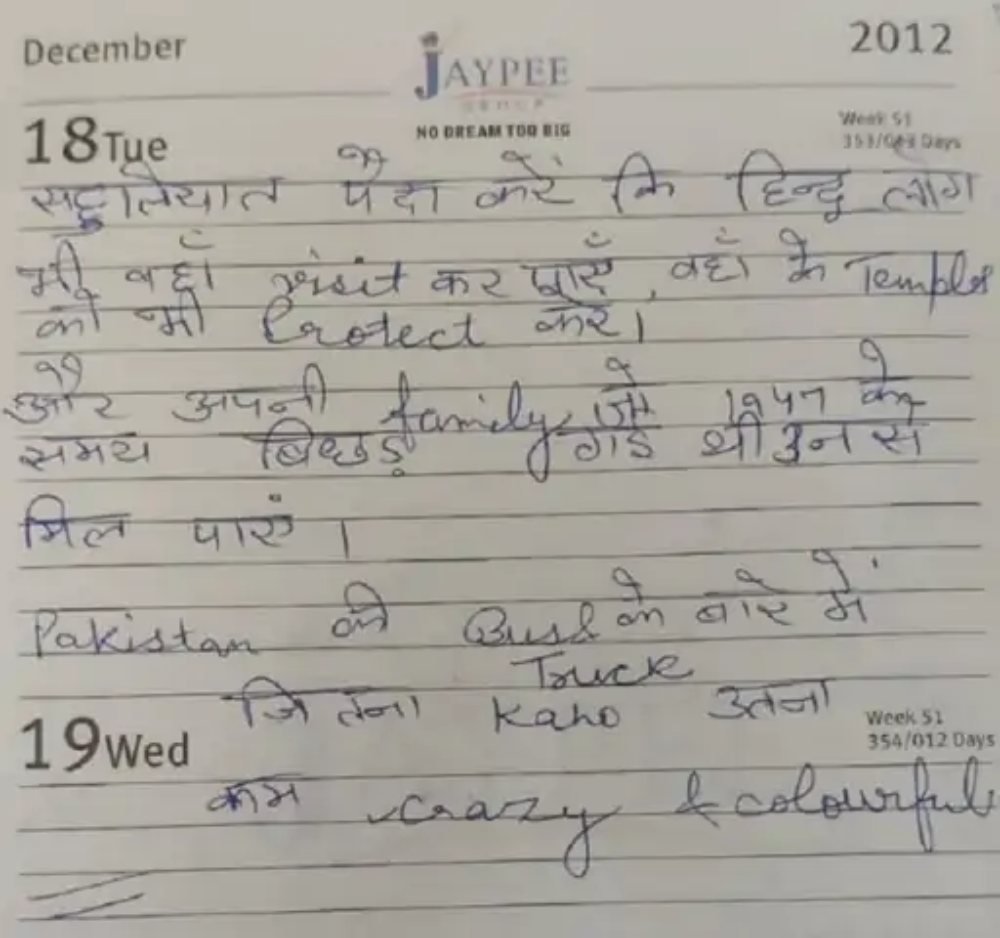 December
JAYPEE
GROUP
NO DREAM TOO BIG
2012
18 Tue
Week 51
353/013 Days
सहुलियात पैदा करें कि हिन्दू लोग
भी वहाँ visit कर पाएँ, वहाँ के Temples
को भी Protect करें।
और अपनी family जो 1947 के
समय बिछड़ गई थी उन से
मिल पाएं।
Pakistan की Bus & के बारे में
Truck
जितना Kaho उतना
19 Wed
Week 51
354/012 Days
कम crazy & colourful